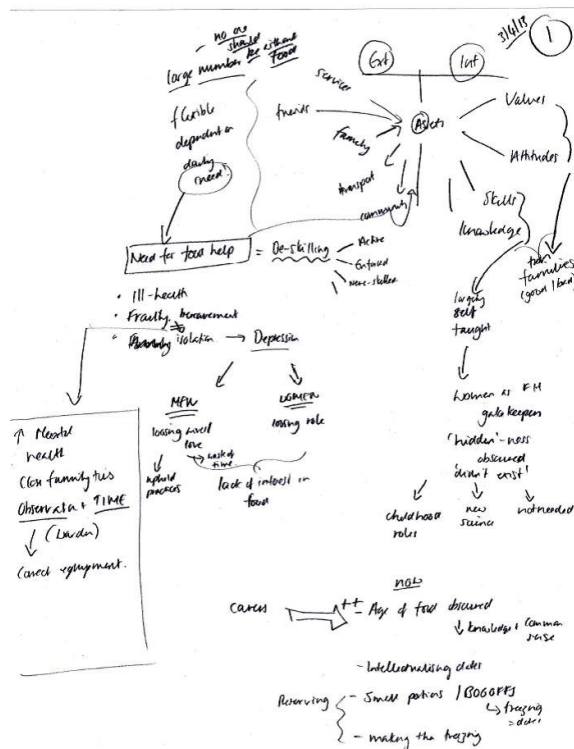 3/4/13
1
no one
should
be without
food
large number
flexible
dependent on
daily
need!
Ext
Int
services
friends
family
transport
community
Assets
Values
Attitudes
Skills
Knowledge
from
families
(good / bad)
Need for food help = De-skilling
Active
Enforced
Never-skilled
• Ill-health
• Frailty, bereavement
• isolation → Depression
MEN
WOMEN
loosing loved
love
losing role
lack of
time
lack of interest in
food
↑ Mental
health
Close family ties
Observation + TIME
(burden)
Correct equipment.
largely
self
taught
Women as FH
gatekeeper
'hidden'-ness
obscured
'didn't exist'
childhood
roles
new
science
not needed
Carers
++
now
- Age of food obscured
↓ knowledge + common
sense
- Intellectualising dates
Reserving
- Small portions / BOGOFFS
↳ freezing
= dates
- making the freezing